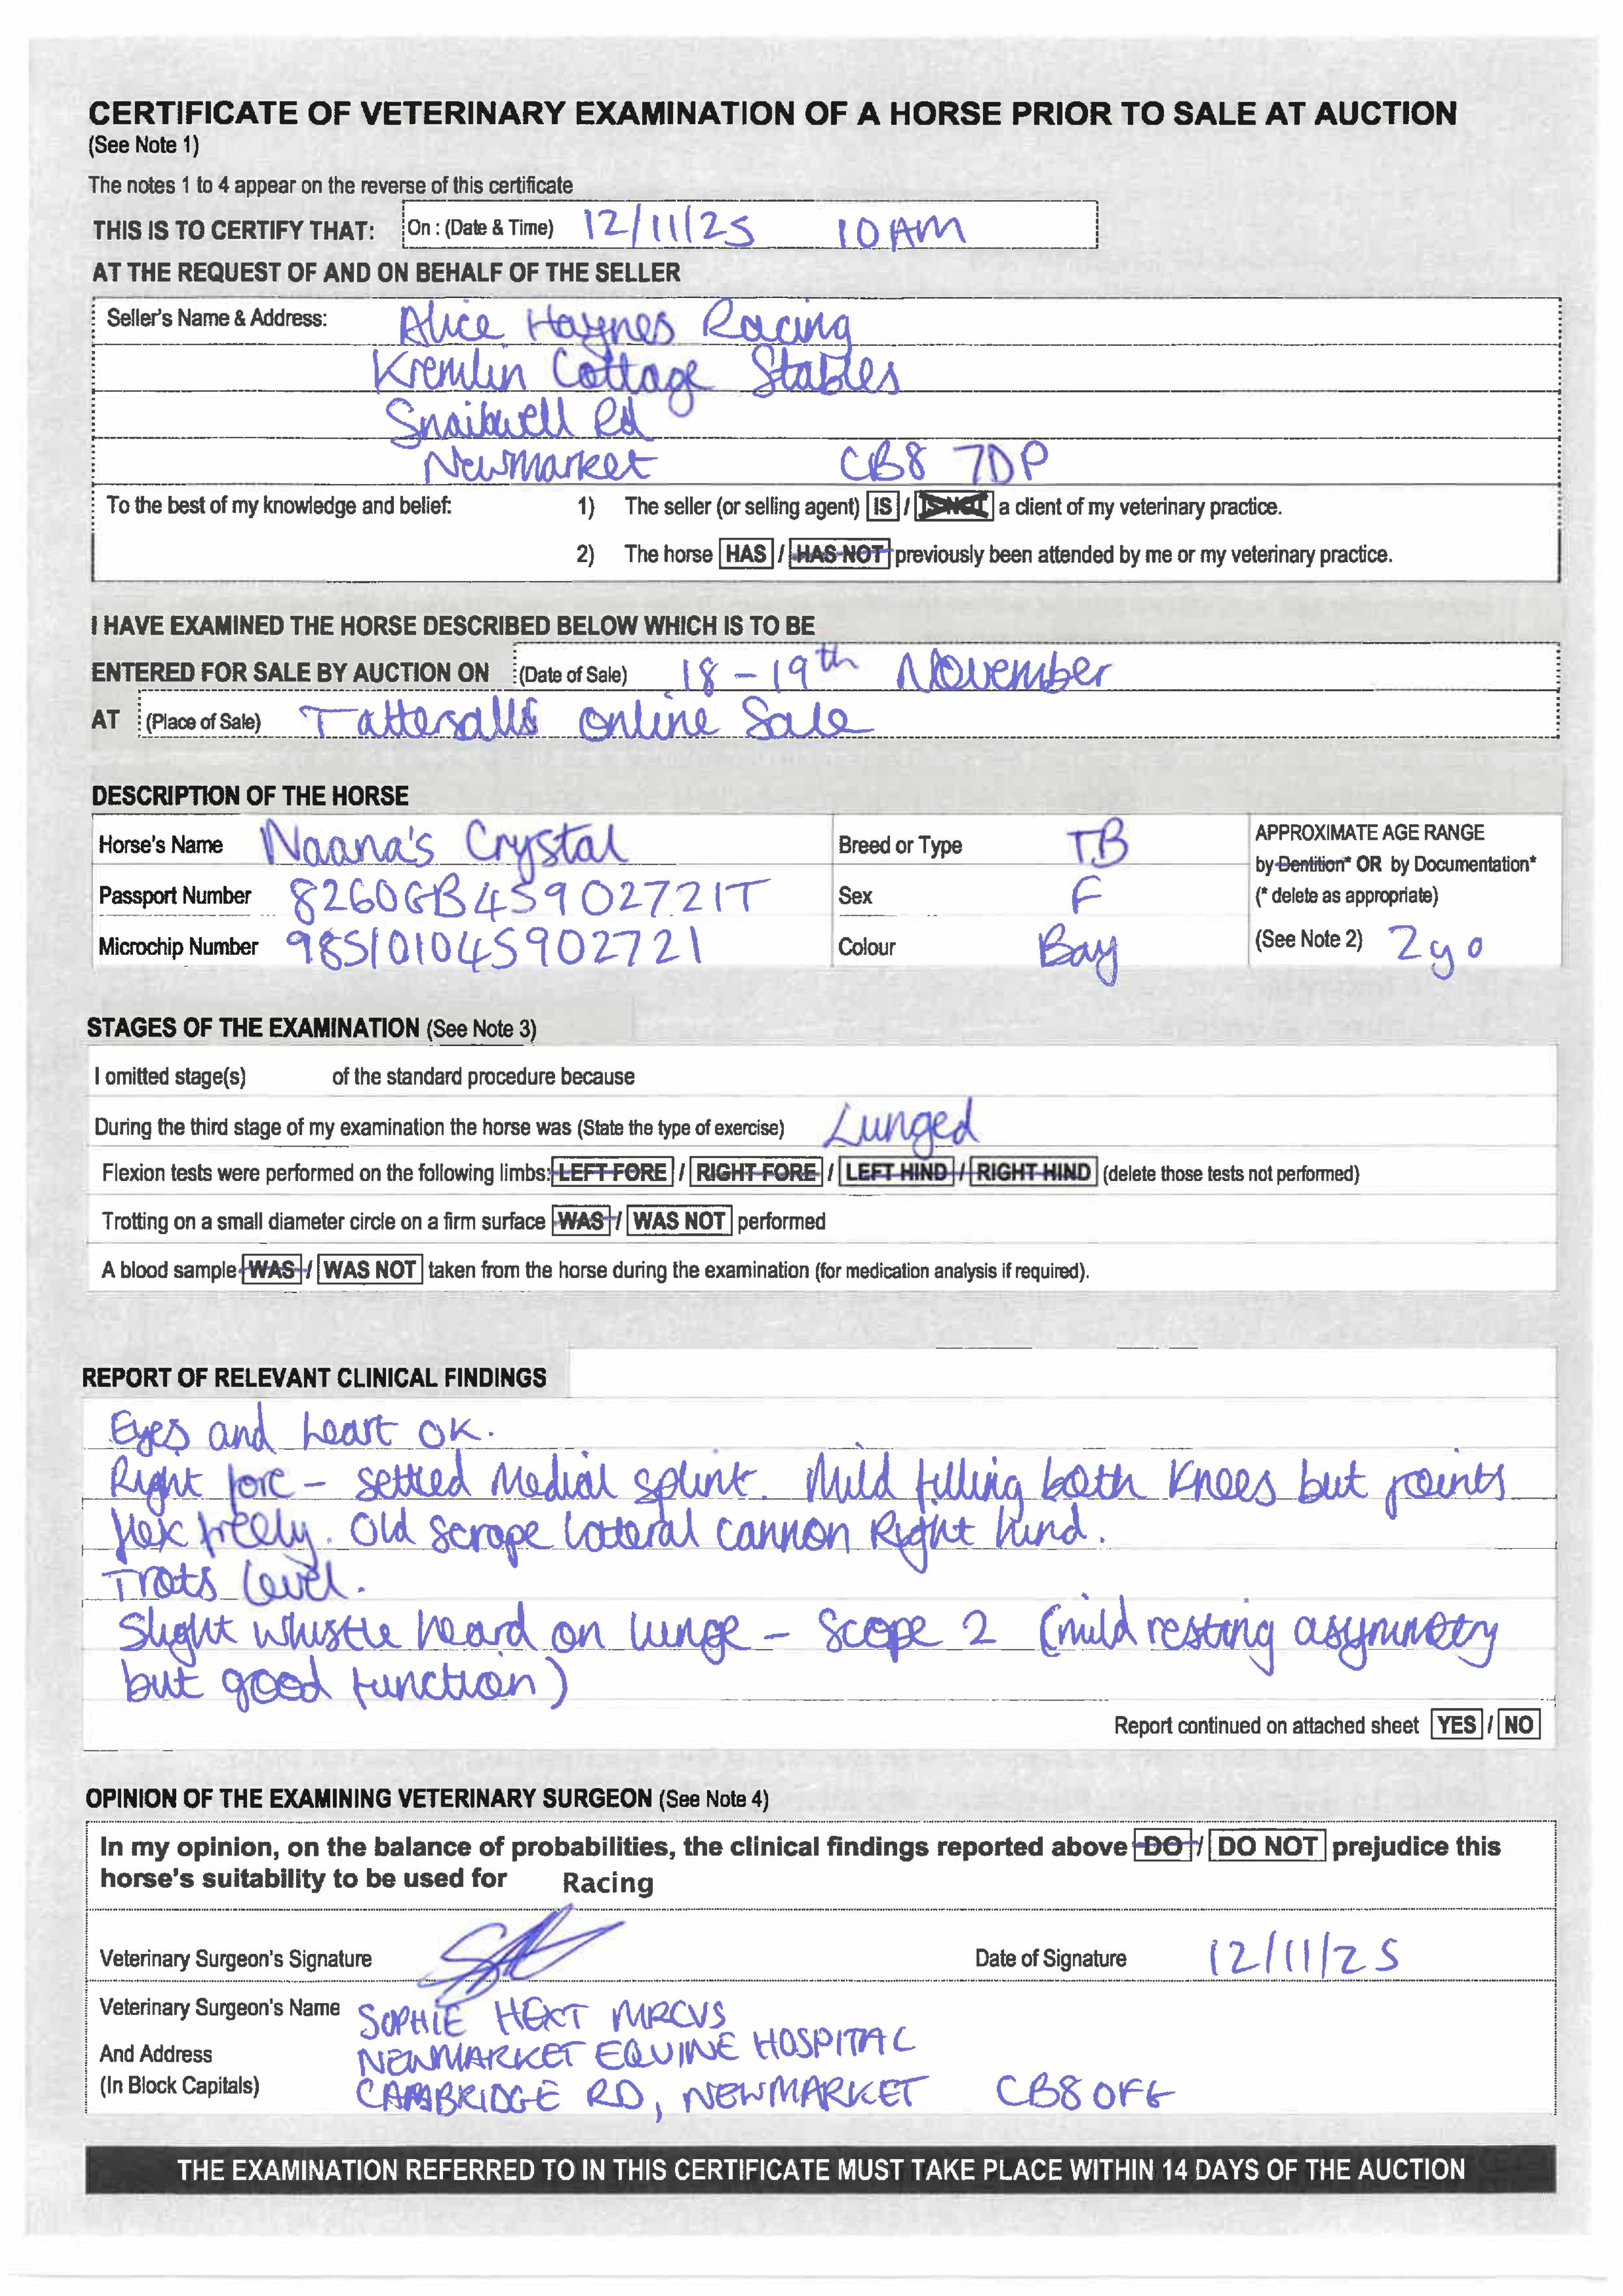 CERTIFICATE OF VETERINARY EXAMINATION OF A HORSE PRIOR TO SALE AT AUCTION
(See Note 1)
The notes 1 to 4 appear on the reverse of this certificate
THIS IS TO CERTIFY THAT: On : (Date & Time) 12/11/25 10AM
AT THE REQUEST OF AND ON BEHALF OF THE SELLER
Seller's Name & Address: Alice Haynes Racing
Kremlin Cottage Stables
Snailwell Rd
Newmarket CB8 7DP
To the best of my knowledge and belief: 1) The seller (or selling agent) IS / IS NOT a client of my veterinary practice.
2) The horse HAS / HAS NOT previously been attended by me or my veterinary practice.
I HAVE EXAMINED THE HORSE DESCRIBED BELOW WHICH IS TO BE
ENTERED FOR SALE BY AUCTION ON (Date of Sale) 18 - 19th November
AT (Place of Sale) Tattersalls online Sale
DESCRIPTION OF THE HORSE
Horse's Name Naana's Crystal Breed or Type TB APPROXIMATE AGE RANGE
by Dentition* OR by Documentation*
Passport Number 8260GB45902721T Sex F (* delete as appropriate)
Microchip Number 985101045902721 Colour Bay (See Note 2) 2yo
STAGES OF THE EXAMINATION (See Note 3)
I omitted stage(s) of the standard procedure because
During the third stage of my examination the horse was (State the type of exercise) Lunged
Flexion tests were performed on the following limbs: LEFT FORE / RIGHT FORE / LEFT HIND / RIGHT HIND (delete those tests not performed)
Trotting on a small diameter circle on a firm surface WAS / WAS NOT performed
A blood sample WAS / WAS NOT taken from the horse during the examination (for medication analysis if required).
REPORT OF RELEVANT CLINICAL FINDINGS
Eyes and heart OK.
Right fore - settled medial splint. Mild filling both knees but joints
flex freely. Old scrape lateral cannon Right hind.
Trots level.
Slight whistle heard on lunge - Scope 2 (mild resting asymmetry
but good function)
Report continued on attached sheet YES / NO
OPINION OF THE EXAMINING VETERINARY SURGEON (See Note 4)
In my opinion, on the balance of probabilities, the clinical findings reported above DO / DO NOT prejudice this
horse's suitability to be used for Racing
Veterinary Surgeon's Signature Date of Signature 12/11/25
Veterinary Surgeon's Name SOPHIE HEXT MRCVS
And Address NEWMARKET EQUINE HOSPITAL
(In Block Capitals) CAMBRIDGE RD, NEWMARKET CB8 0FG
THE EXAMINATION REFERRED TO IN THIS CERTIFICATE MUST TAKE PLACE WITHIN 14 DAYS OF THE AUCTION